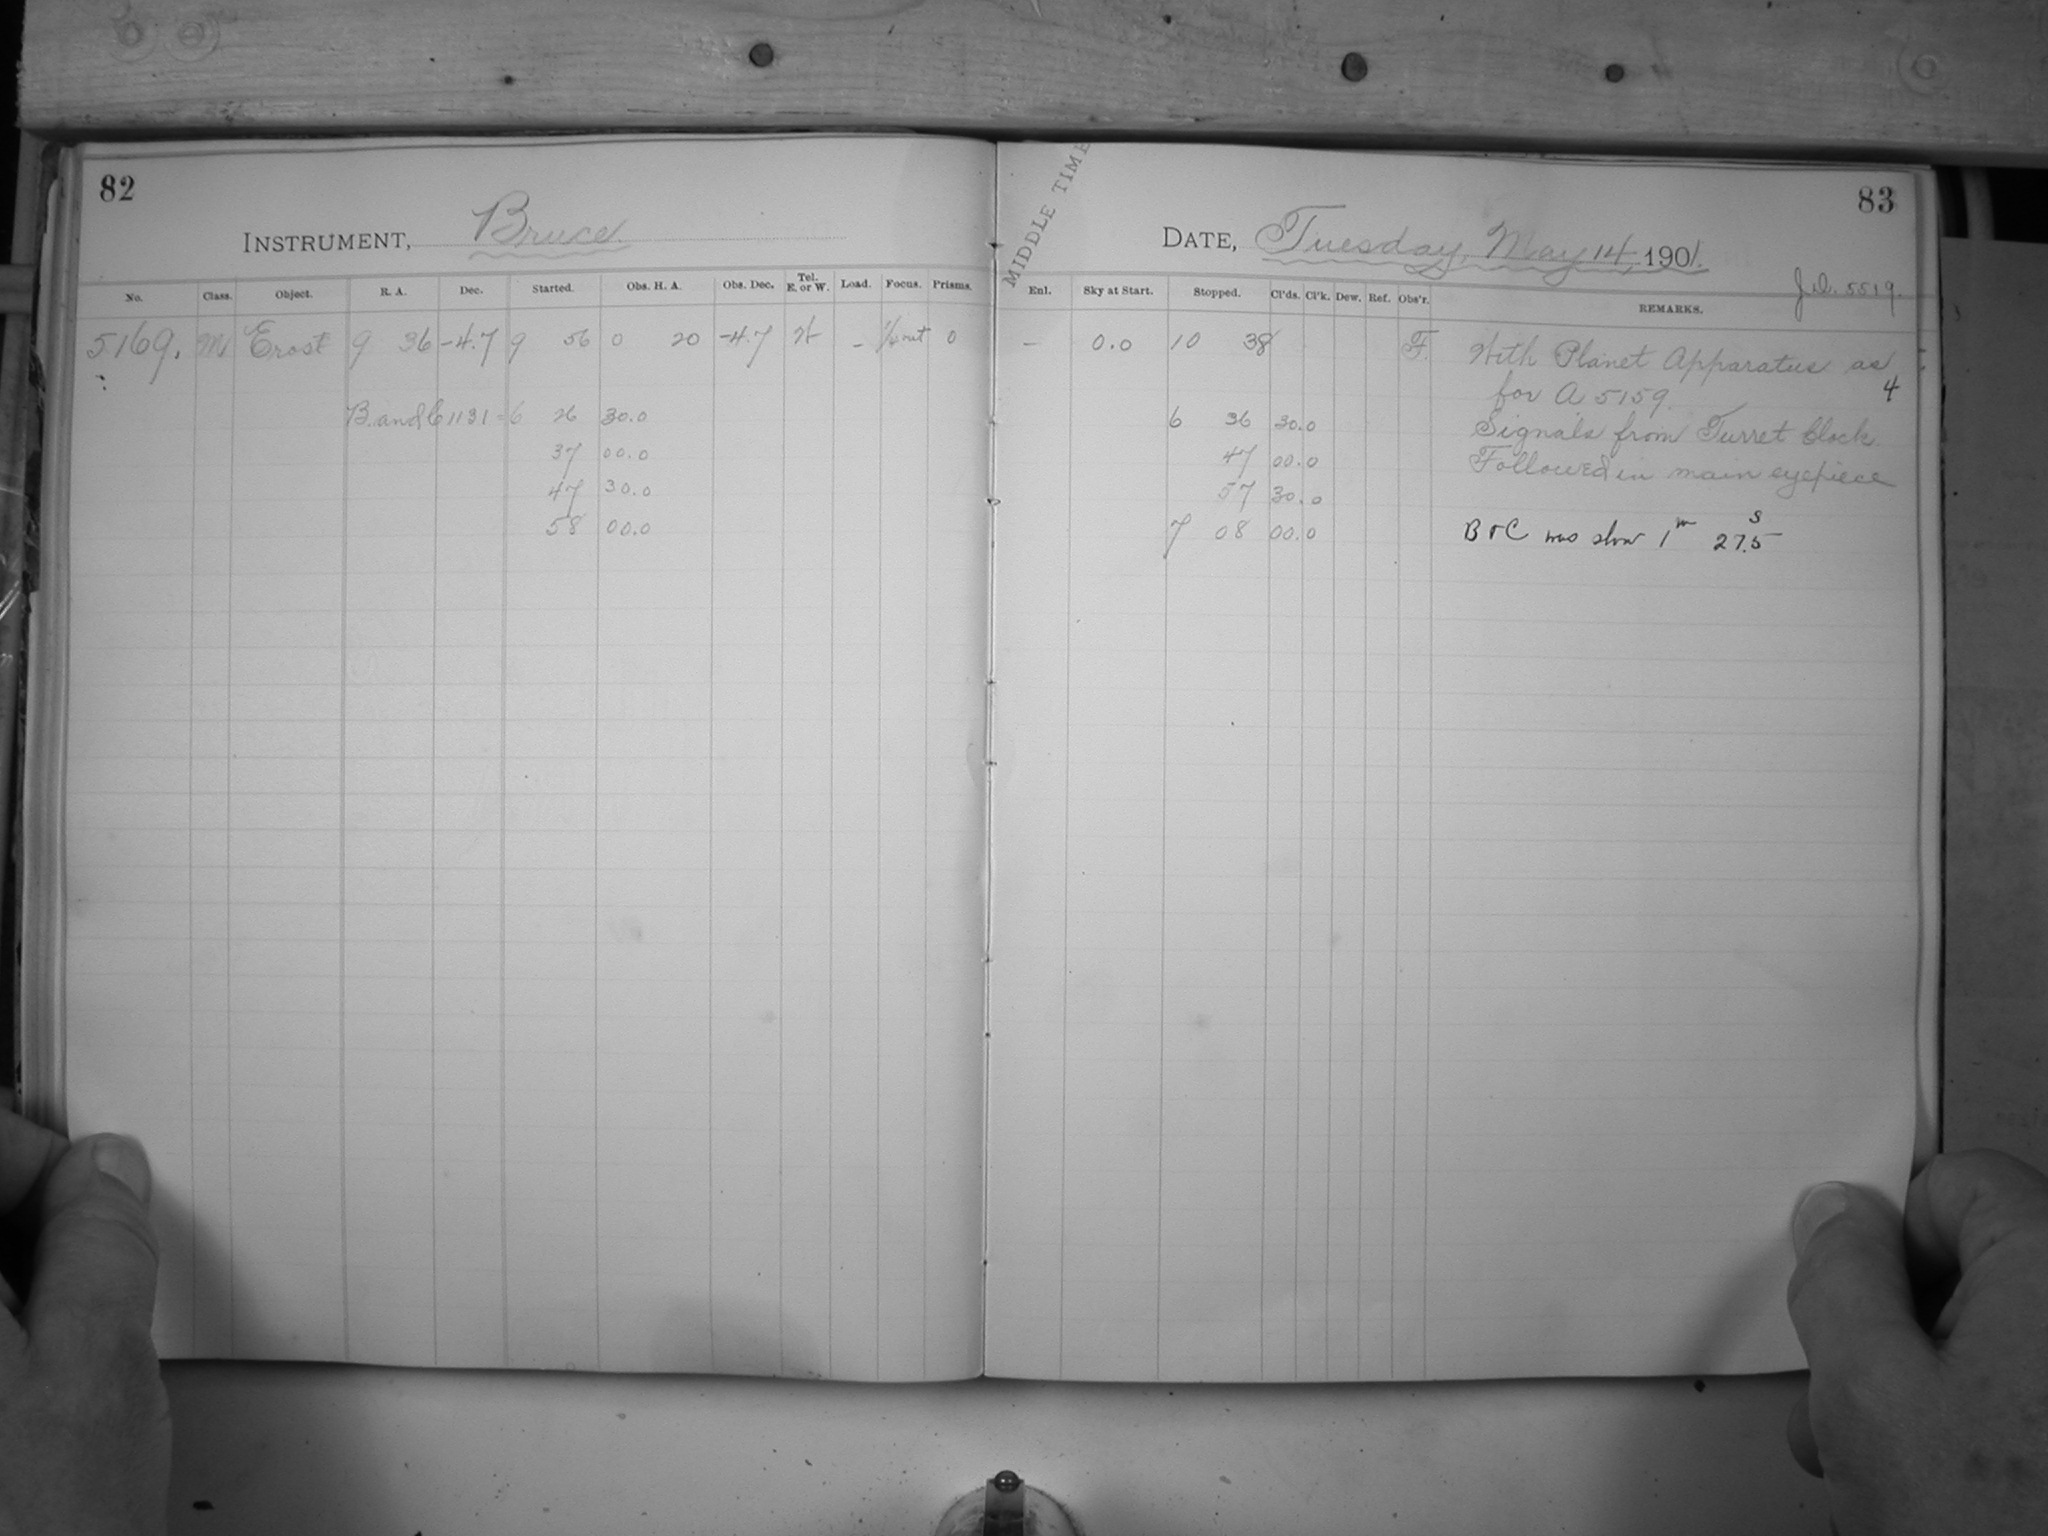 82
INSTRUMENT, Bruce.
No. Class. Object. R. A. Dec. Started. Obs. H. A. Obs. Dec. Tel. E. or W. Load. Focus. Prisms.
5169. M Erost 9 36 -4.7 9 56 0 20 -4.7 W - out 0
B. and C 1131 = 6 26 30.0
37 00.0
47 30.0
58 00.0
MIDDLE TIME
83
DATE, Tuesday, May 14, 1901.
J.D. 5519.
Enl. Sky at Start. Stopped. Cl'ds. Cl'k. Dew. Ref. Obs'r. REMARKS.
- 0.0 10 38 F. With Planet Apparatus as
for A 5159. 4
6 36 30.0 Signals from Turret Clock
47 00.0 Followed in main eyepiece
57 30.0
7 08 00.0 B & C was slow 1m 27.5s